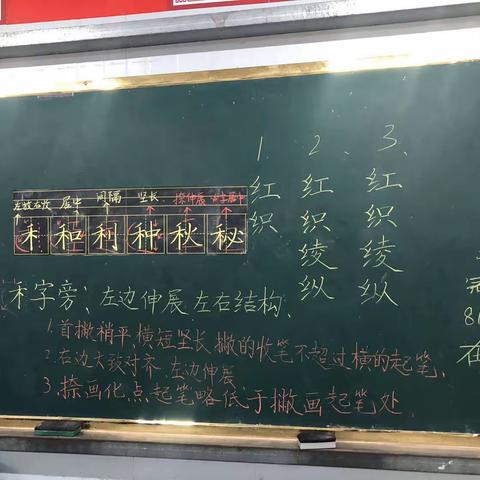 1. 2. 3.
红织
红织绫纵
红织绫纵
左放右收 居中 间隔 竖长 捺伸展
禾 和 利 种 秋 秘
禾字旁:左边伸展 左右结构、
1.首撇稍平 横短竖长 撇的收笔不超过横的起笔、
2.右边大致对齐 左边伸展
3.捺画化点起笔略低于撇画起笔处